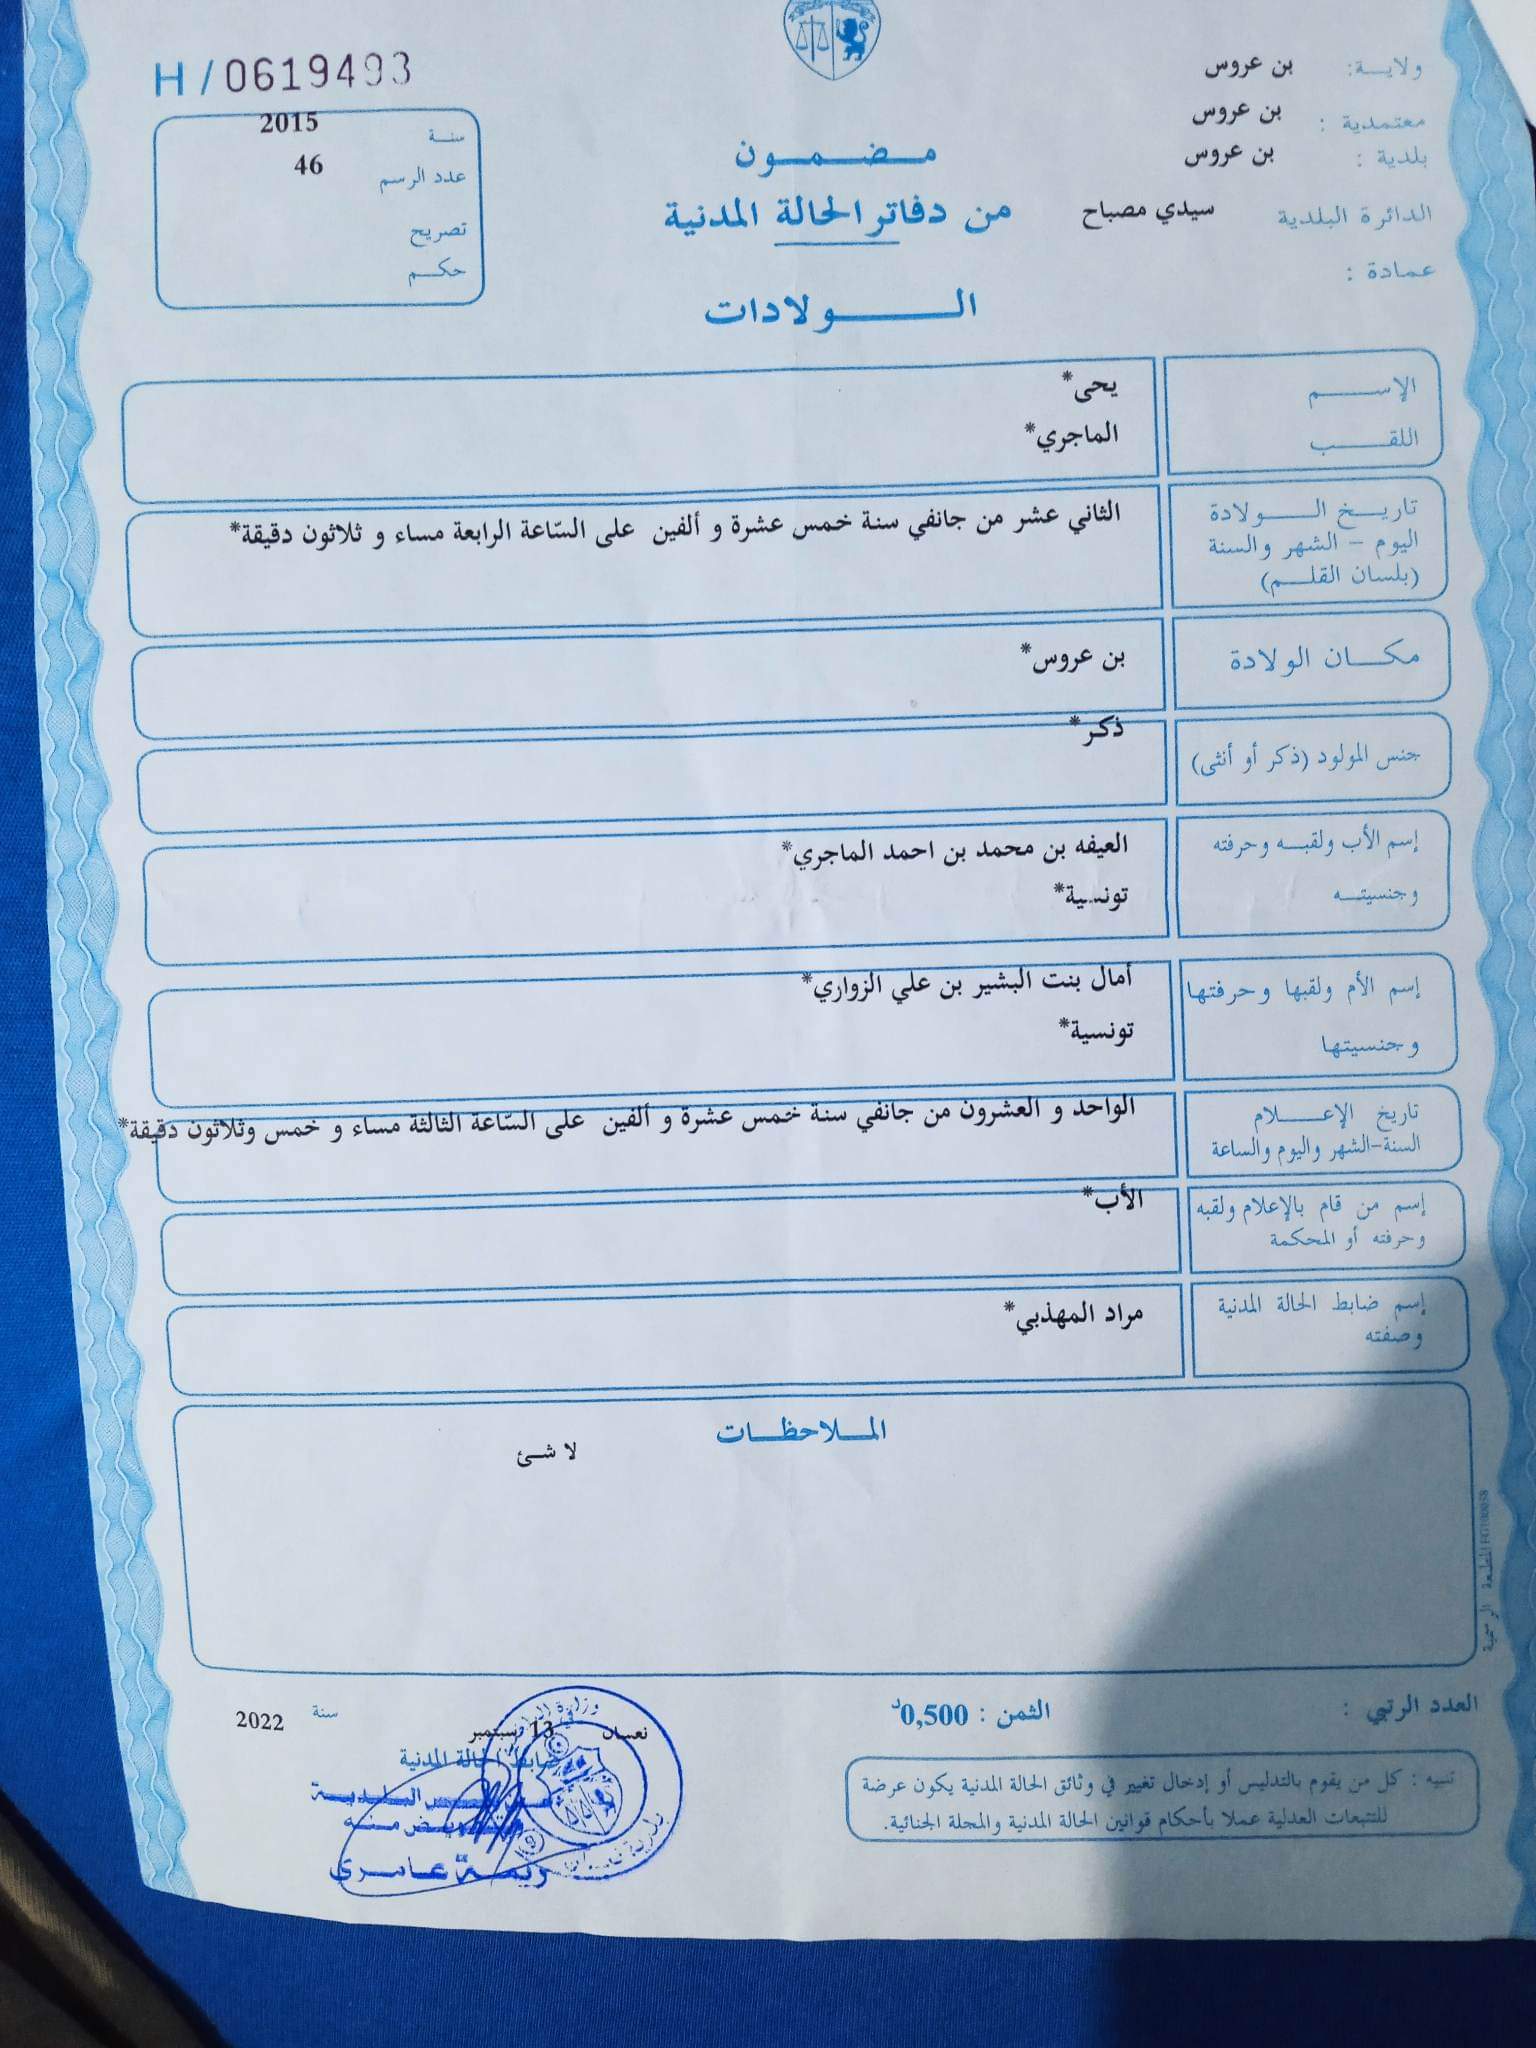 H / 0619493
سنة 2015
عدد الرسم 46
تصريح
حكم
ولاية: بن عروس
معتمدية : بن عروس
بلدية : بن عروس
الدائرة البلدية سيدي مصباح
عمادة :
مضمون
من دفاتر الحالة المدنية
الولادات
الإسم يحى*
اللقب الماجري*
تاريخ الولادة
اليوم - الشهر والسنة
(بلسان القلم)
الثاني عشر من جانفي سنة خمس عشرة و ألفين على السّاعة الرابعة مساء و ثلاثون دقيقة*
مكان الولادة بن عروس*
جنس المولود (ذكر أو أنثى) ذكر*
إسم الأب ولقبه وحرفته العيفه بن محمد بن احمد الماجري*
وجنسيته تونسية*
إسم الأم ولقبها وحرفتها أمال بنت البشير بن علي الزواري*
وجنسيتها تونسية*
تاريخ الإعلام
السنة-الشهر واليوم والساعة
الواحد و العشرون من جانفي سنة خمس عشرة و ألفين على السّاعة الثالثة مساء و خمس وثلاثون دقيقة*
إسم من قام بالإعلام ولقبه
وحرفته أو المحكمة
الأب*
إسم ضابط الحالة المدنية
وصفته
مراد المهذبي*
الملاحظات
لا شئ
المطبعة الرسمية
العدد الرتبي :
الثمن : 0,500د
تنبيه : كل من يقوم بالتدليس أو إدخال تغيير في وثائق الحالة المدنية يكون عرضة
للتتبعات العدلية عملا بأحكام قوانين الحالة المدنية والمجلة الجنائية.
نعسان في 13 سبتمبر سنة 2022
ضابط الحالة المدنية
البلدية
ريمة عامري
وزارة